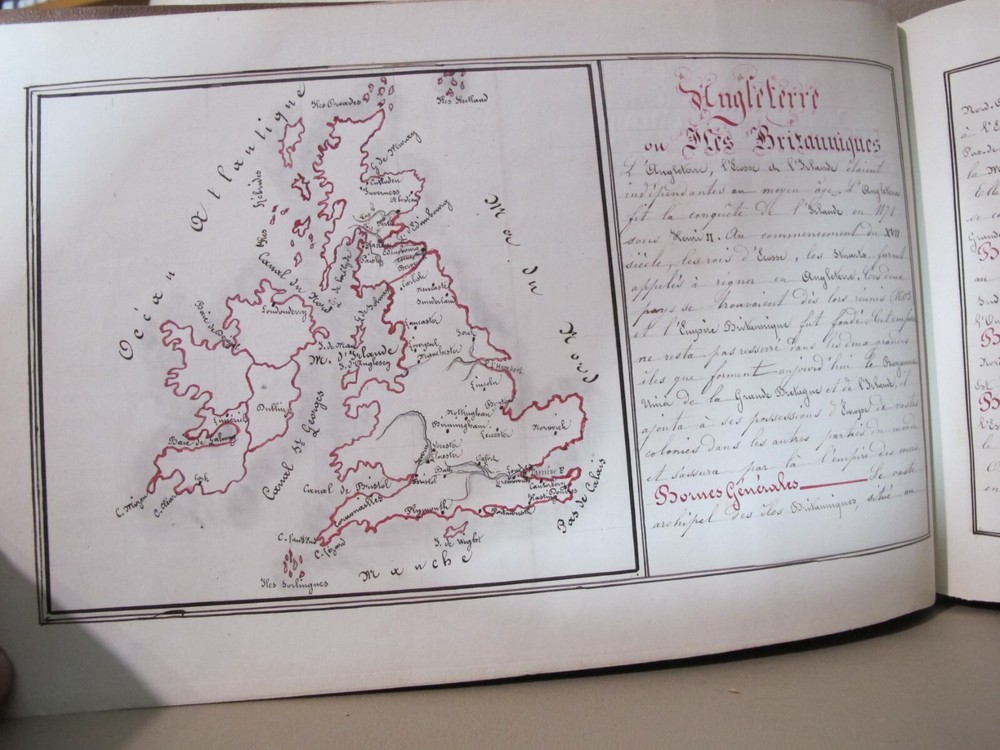 Océan Atlantique
Iles Orcades
Iles Shetland
G. de Murray
Culloden
Inverness
Iles Hébrides
Canal du Nord
Mer du Nord
Édimbourg
Carlisle
Newcastle
Sunderland
Londonderry
I. de Man
M. d'Irlande
I. d'Anglesey
Lancaster
Liverpool
Manchester
Lincoln
Dublin
Limerick
Baie de Galway
Cork
C. Clear
Canal St Georges
Nottingham
Birmingham
Norwich
Canal de Bristol
Bristol
Cornouailles
Plymouth
Portsmouth
Cantorbery
Hastings
Pas de Calais
I. de Wight
C. Lizard
Iles Sorlingues
Manche
Angleterre
ou Iles Britanniques
L'Angleterre, l'Ecosse et l'Irlande étaient
indépendantes au moyen âge. L'Angleterre
fit la conquête de l'Irlande en 1171
sous Henri II. Au commencement du XVII
siècle, les rois d'Ecosse, les Stuarts, furent
appelés à régner en Angleterre. Les deux
pays se trouvaient dès lors réunis (1603)
et l'Empire Britannique fut fondé. Cet empire
ne resta pas resserré dans les deux grandes
îles que forment aujourd'hui le Royaume
Uni de la Grande Bretagne et de l'Irlande, il
ajouta à ses possessions d'Europe de vastes
colonies dans les autres parties du monde
et s'assura par là l'empire des mers.
Bornes Générales Le vaste
archipel des îles Britanniques, situé au